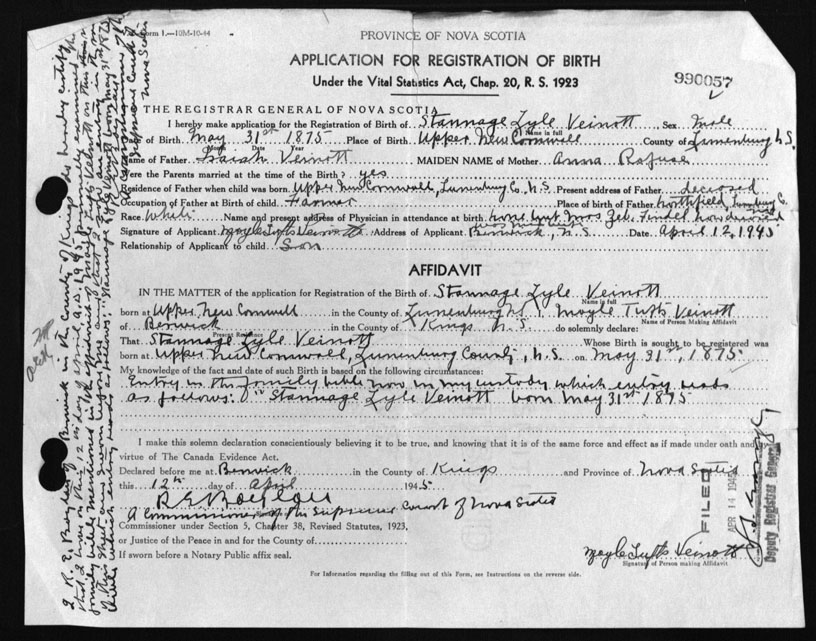 Form 1.—10M-10-44
PROVINCE OF NOVA SCOTIA
APPLICATION FOR REGISTRATION OF BIRTH
Under the Vital Statistics Act, Chap. 20, R. S. 1923
990057
THE REGISTRAR GENERAL OF NOVA SCOTIA
I hereby make application for the Registration of Birth of Stannage Lyle Veinott Sex Male
Name in full
of Birth May 31st 1875 Place of Birth Upper New Cornwall County of Lunenburg N.S.
Month Date Year
Name of Father Isaiah Veinott MAIDEN NAME of Mother Anna Rafuse
Were the Parents married at the time of the Birth? yes
Residence of Father when child was born Upper New Cornwall, Lunenburg Co. N.S. Present address of Father deceased
Occupation of Father at Birth of child Farmer Place of birth of Father Northfield, Lunenburg Co.
Race White Name and present address of Physician in attendance at birth none but Mrs Zeb. now deceased
Signature of Applicant Moyle Tufts Veinott Address of Applicant Berwick, N.S. Date April 12, 1945
Relationship of Applicant to child Son
AFFIDAVIT
IN THE MATTER of the application for Registration of the Birth of Stannage Lyle Veinott
Name in full
born at Upper New Cornwall in the County of Lunenburg I Moyle Tufts Veinott
Name of Person Making Affidavit
of Berwick in the County of Kings N.S. do solemnly declare:
Present Residence
That Stannage Lyle Veinott Whose Birth is sought to be registered was
born at Upper New Cornwall, Lunenburg County, N.S. on May 31st, 1875
My knowledge of the fact and date of such Birth is based on the following circumstances:
Entry in the family bible now in my custody which entry reads
as follows: "Stannage Lyle Veinott born May 31st 1875
I make this solemn declaration conscientiously believing it to be true, and knowing that it is of the same force and effect as if made under oath and by
virtue of The Canada Evidence Act.
Declared before me at Berwick in the County of Kings and Province of Nova Scotia
this 12th day of April 1945
R E Boylan
A Commissioner of the Supreme Court of Nova Scotia
Commissioner under Section 5, Chapter 38, Revised Statutes, 1923,
or Justice of the Peace in and for the County of
If sworn before a Notary Public affix seal.
Moyle Tufts Veinott
Signature of Person making Affidavit
For Information regarding the filling out of this Form, see Instructions on the reverse side.
FILED
APR 14 1945
Deputy Registrar General